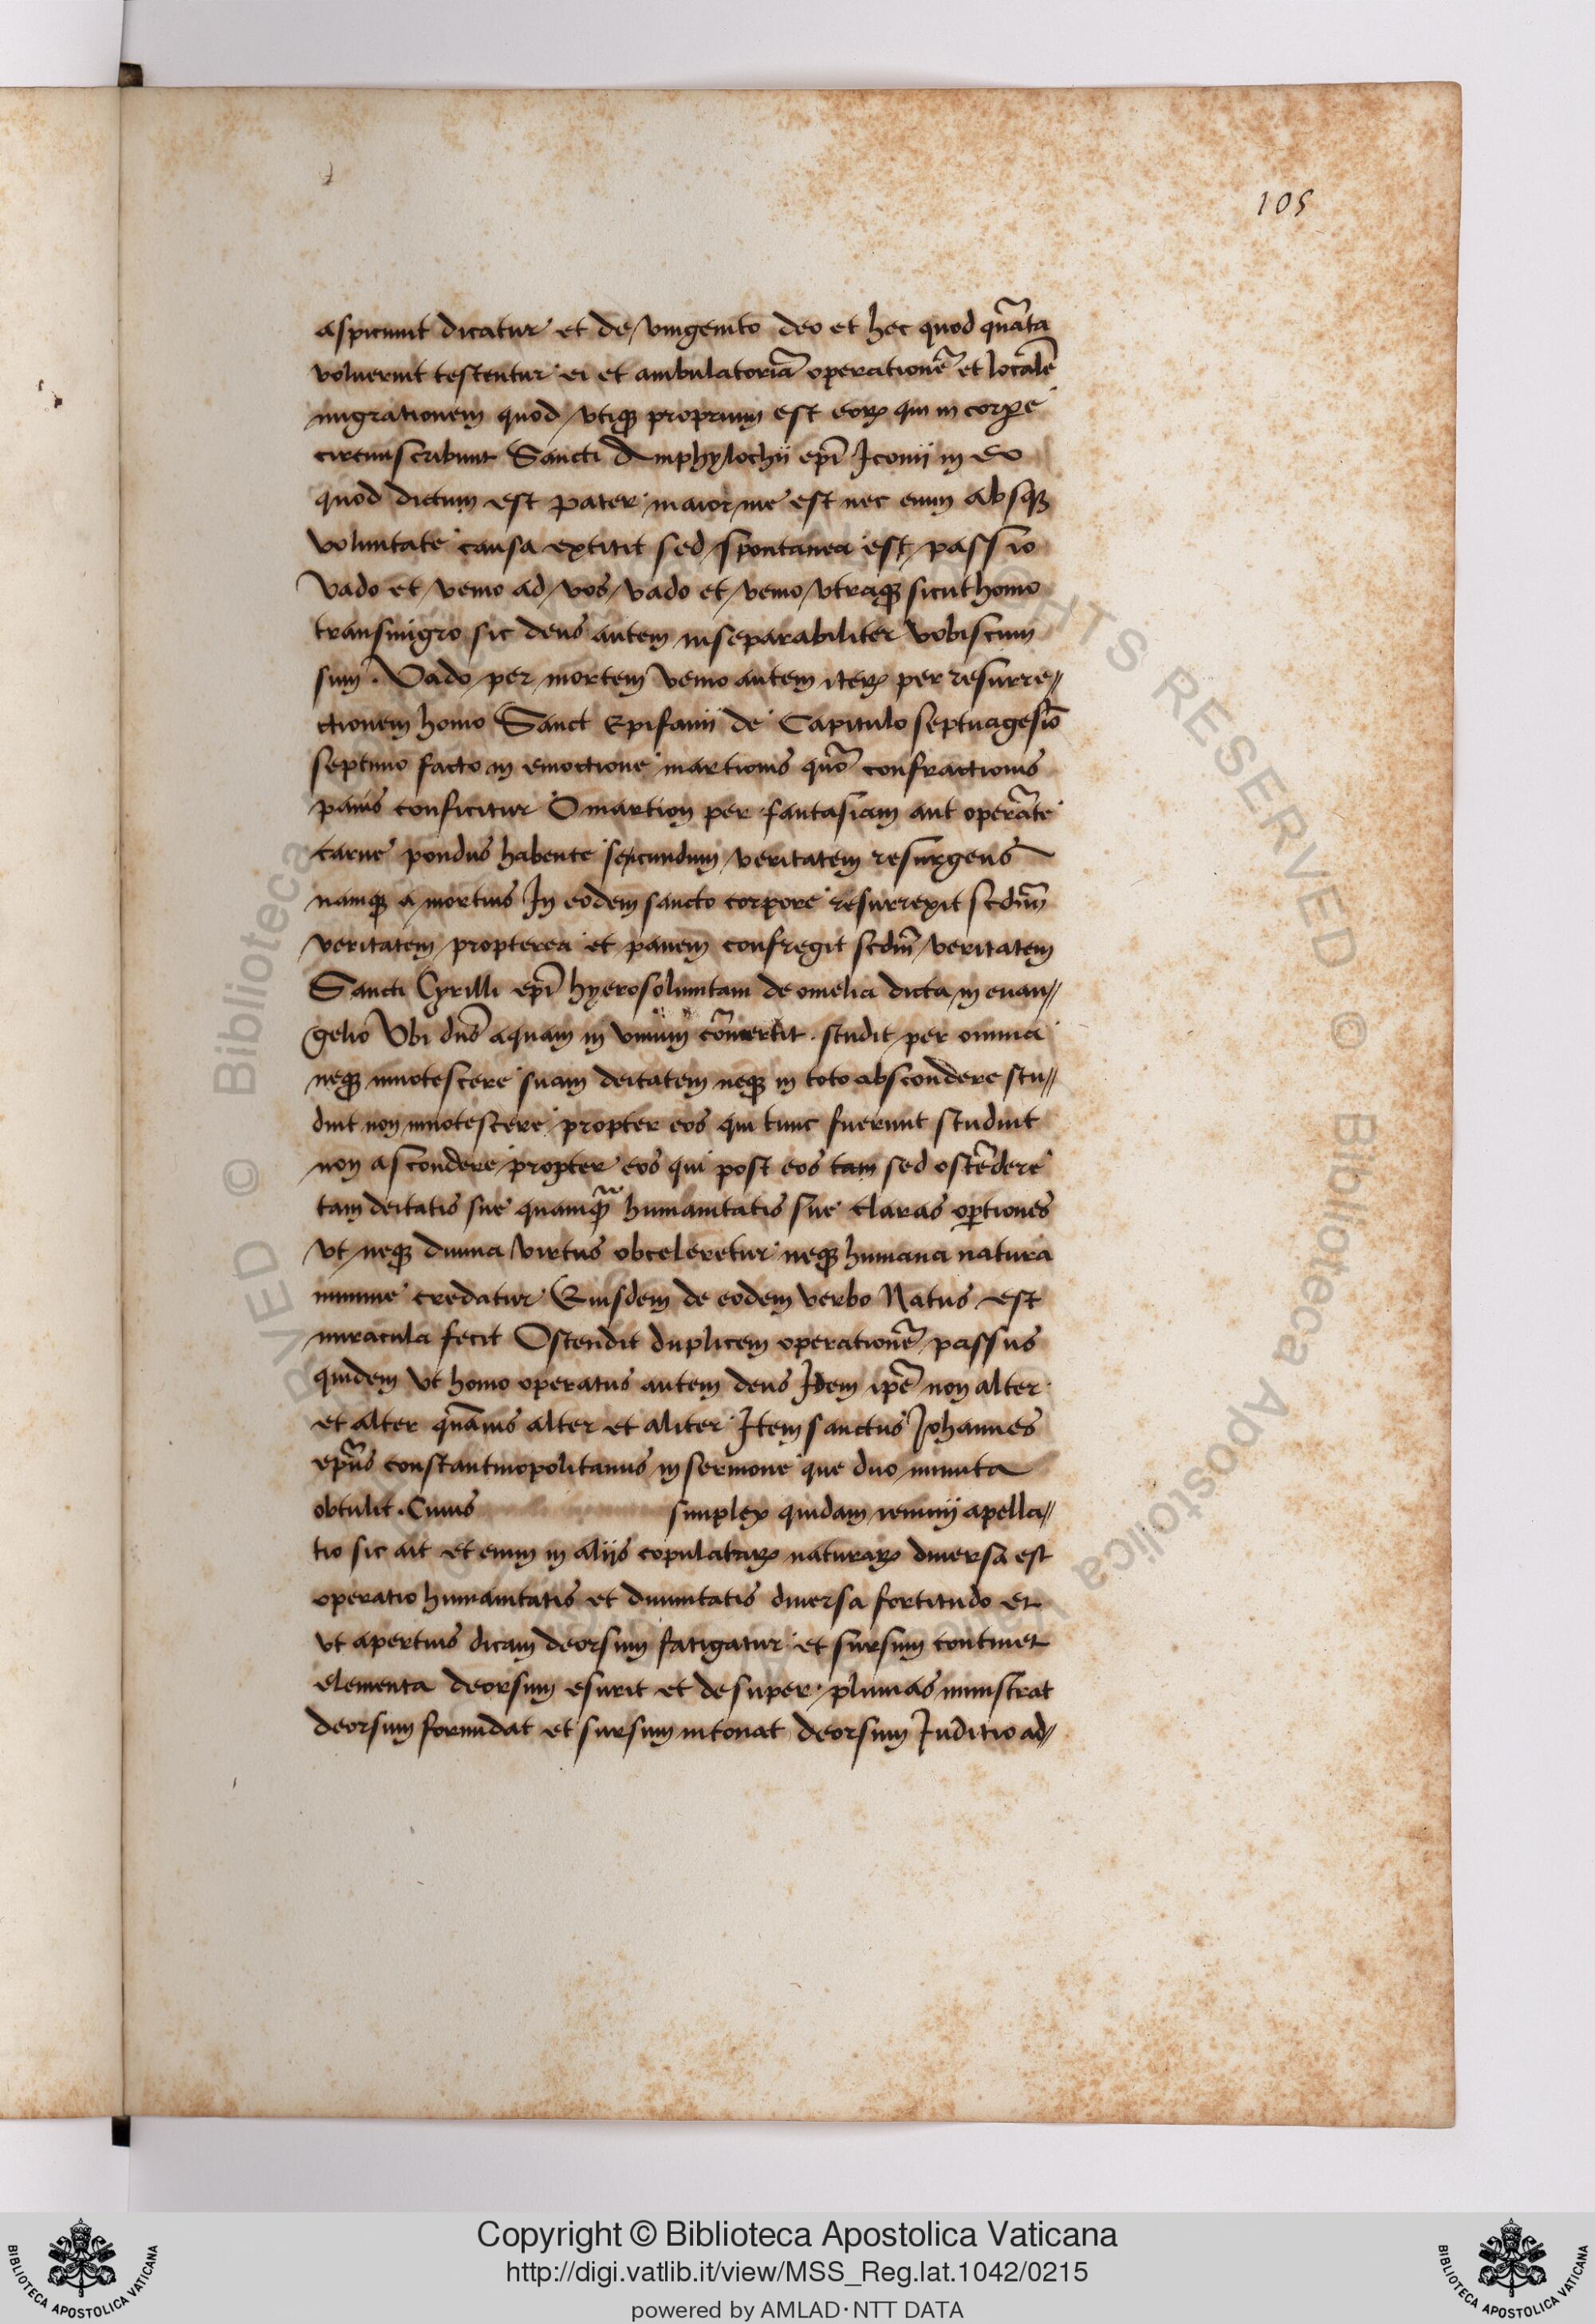 105
aspiciunt dicatur et de vnigenito deo et hec quod qnãta
voluerint testentur ei et ambulatoriã operationẽ et localẽ
migrationem quod vtiqꝫ proprium est eoꝝ qui in corꝑe
circumscribunt Sancti Amphylochii epĩ Iconii in eo
quod dictum est Pater maior me est nec enim absqꝫ
voluntate causa extitit sed spontanea est passio
Vado et venio ad vos vado et venio vtraqꝫ sicut homo
transmigro sic deus autem inseparabiliter vobiscum
sum. Vado per mortem venio autem iteꝝ per resurre//
ctionem homo Sanct Epifanii de Capitulo septuagesiõ
septimo facto in emoctione martionis quõ confractionis
panis conficitur O martion per fantasiam aut operãte
carne pondus habente secundum veritatem resurgens
namqꝫ a mortuis In eodem sancto corpore resurrexit scdm̃
veritatem propterea et panem confregit scdm̃ veritatem
Sancti Cyrilli epĩ hyerosolimitani de omelia dicta in euan//
gelio Vbi dñs aquam in vinum cõuertit. studit per omnia
neqꝫ innotescere suam deitatem neqꝫ in toto abscondere stu//
duit non innotescere propter eos qui tunc fuerunt studuit
non ascondere propter eos qui post eos tam sed ostẽdere
tam deitatis sue quamqꝫ humanitatis sue claras oꝑtiones
vt neqꝫ diuina virtus obceleretur neqꝫ humana natura
minime credatur Eiusdem de eodem verbo Natus est
miracula fecit Ostendit duplicem operationẽ passus
quidem vt homo operatus autem deus Idem ipẽ non alter
et alter quãuis alter et aliter Item sanctus Iohannes
epũs constantinopolitanus in sermone que duo minuta
obtulit. Cuius simplex quidam ieiunii apella//
tio sic ait et enim in aliis copulataꝝ naturaꝝ diuersa est
operatio humanitatis et diuinitatis diuersa fortitudo et
vt apertius dicam deorsum fatigatur et sursum continet
elementa deorsum esurit et desuper pluuias ministrat
deorsum formidat et sursum intonat deorsum Iuditio ad//
Copyright © Biblioteca Apostolica Vaticana
http://digi.vatlib.it/view/MSS_Reg.lat.1042/0215
powered by AMLAD·NTT DATA
BIBLIOTECA APOSTOLICA VATICANA
BIBLIOTECA APOSTOLICA VATICANA